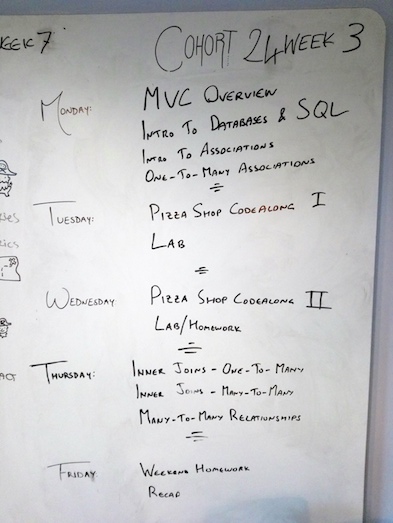 EEK 7
COHORT 24 WEEK 3
MONDAY:
MVC OVERVIEW
INTRO TO DATABASES & SQL
INTRO TO ASSOCIATIONS
ONE-TO-MANY ASSOCIATIONS
TUESDAY:
PIZZA SHOP CODEALONG I
LAB
WEDNESDAY
PIZZA SHOP CODEALONG II
LAB/HOMEWORK
THURSDAY:
INNER JOINS - ONE-TO-MANY
INNER JOINS - MANY-TO-MANY
MANY-TO-MANY RELATIONSHIPS
FRIDAY
WEEKEND HOMEWORK
RECAP